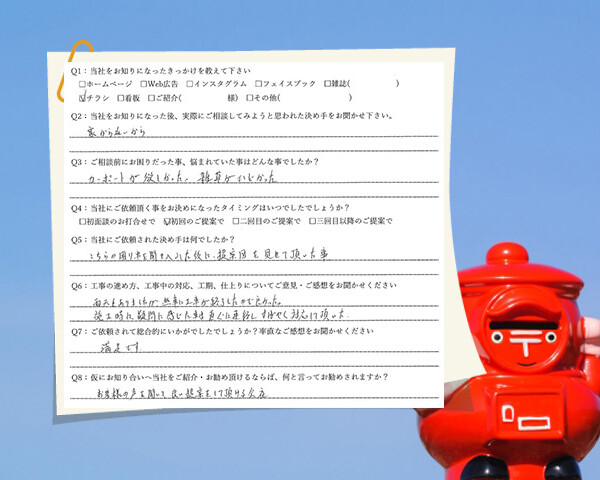 Q1：当社をお知りになったきっかけを教えて下さい
□ホームページ □Web広告 □インスタグラム □フェイスブック □雑誌( )
☑チラシ □看板 □ご紹介( 様) □その他( )
Q2：当社をお知りになった後、実際にご相談してみようと思われた決め手をお聞かせ下さい。
家から近いから
Q3：ご相談前にお困りだった事、悩まれていた事はどんな事でしたか？
カーポートが欲しかった。雑草がひどかった
Q4：当社にご依頼頂く事をお決めになったタイミングはいつでしたでしょうか？
□初面談のお打合せで ☑初回のご提案で □二回目のご提案で □三回目以降のご提案で
Q5：当社にご依頼された決め手は何でしたか？
こちらの困り事を聞き入れた後に、提案図を見せて頂いた事
Q6：工事の進め方、工事中の対応、工期、仕上りについてご意見・ご感想をお聞かせください
無事に工事が終了したので良かった。
施工時に疑問に感じた時 直ぐに連絡し すばやく対応して頂いた
Q7：ご依頼されて総合的にいかがでしたでしょうか？率直なご感想をお聞かせください
満足です
Q8：仮にお知り合いへ当社をご紹介・お勧め頂けるならば、何と言ってお勧めされますか？
お客様の声を聞いて 良い提案をして頂ける
〒